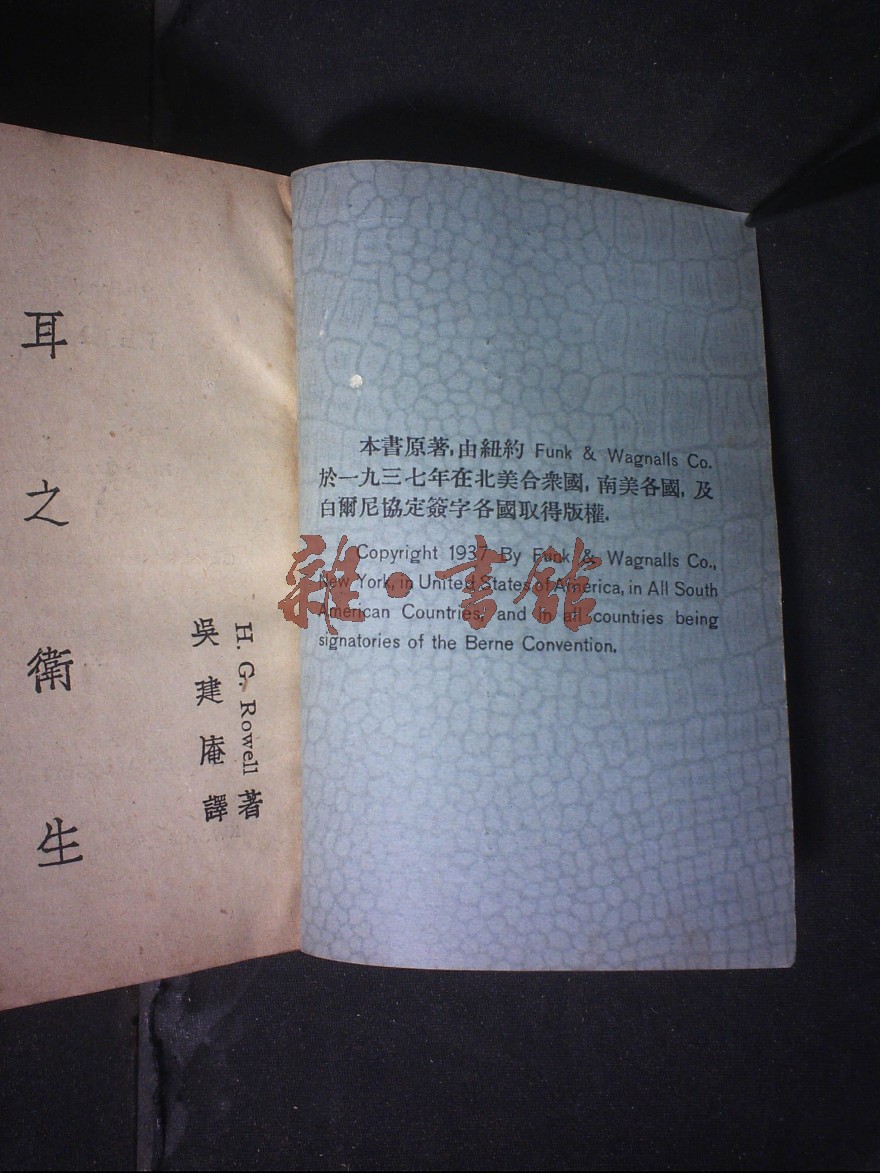 耳之衛生
H. G. Rowell 著
吳建庵譯
本書原著,由紐約 Funk & Wagnalls Co.
於一九三七年在北美合衆國,南美各國,及
白爾尼協定簽字各國取得版權.
Copyright 1937 By Funk & Wagnalls Co.,
New York, in United States of America, in All South
American Countries, and in all countries being
signatories of the Berne Convention.
雜·書館